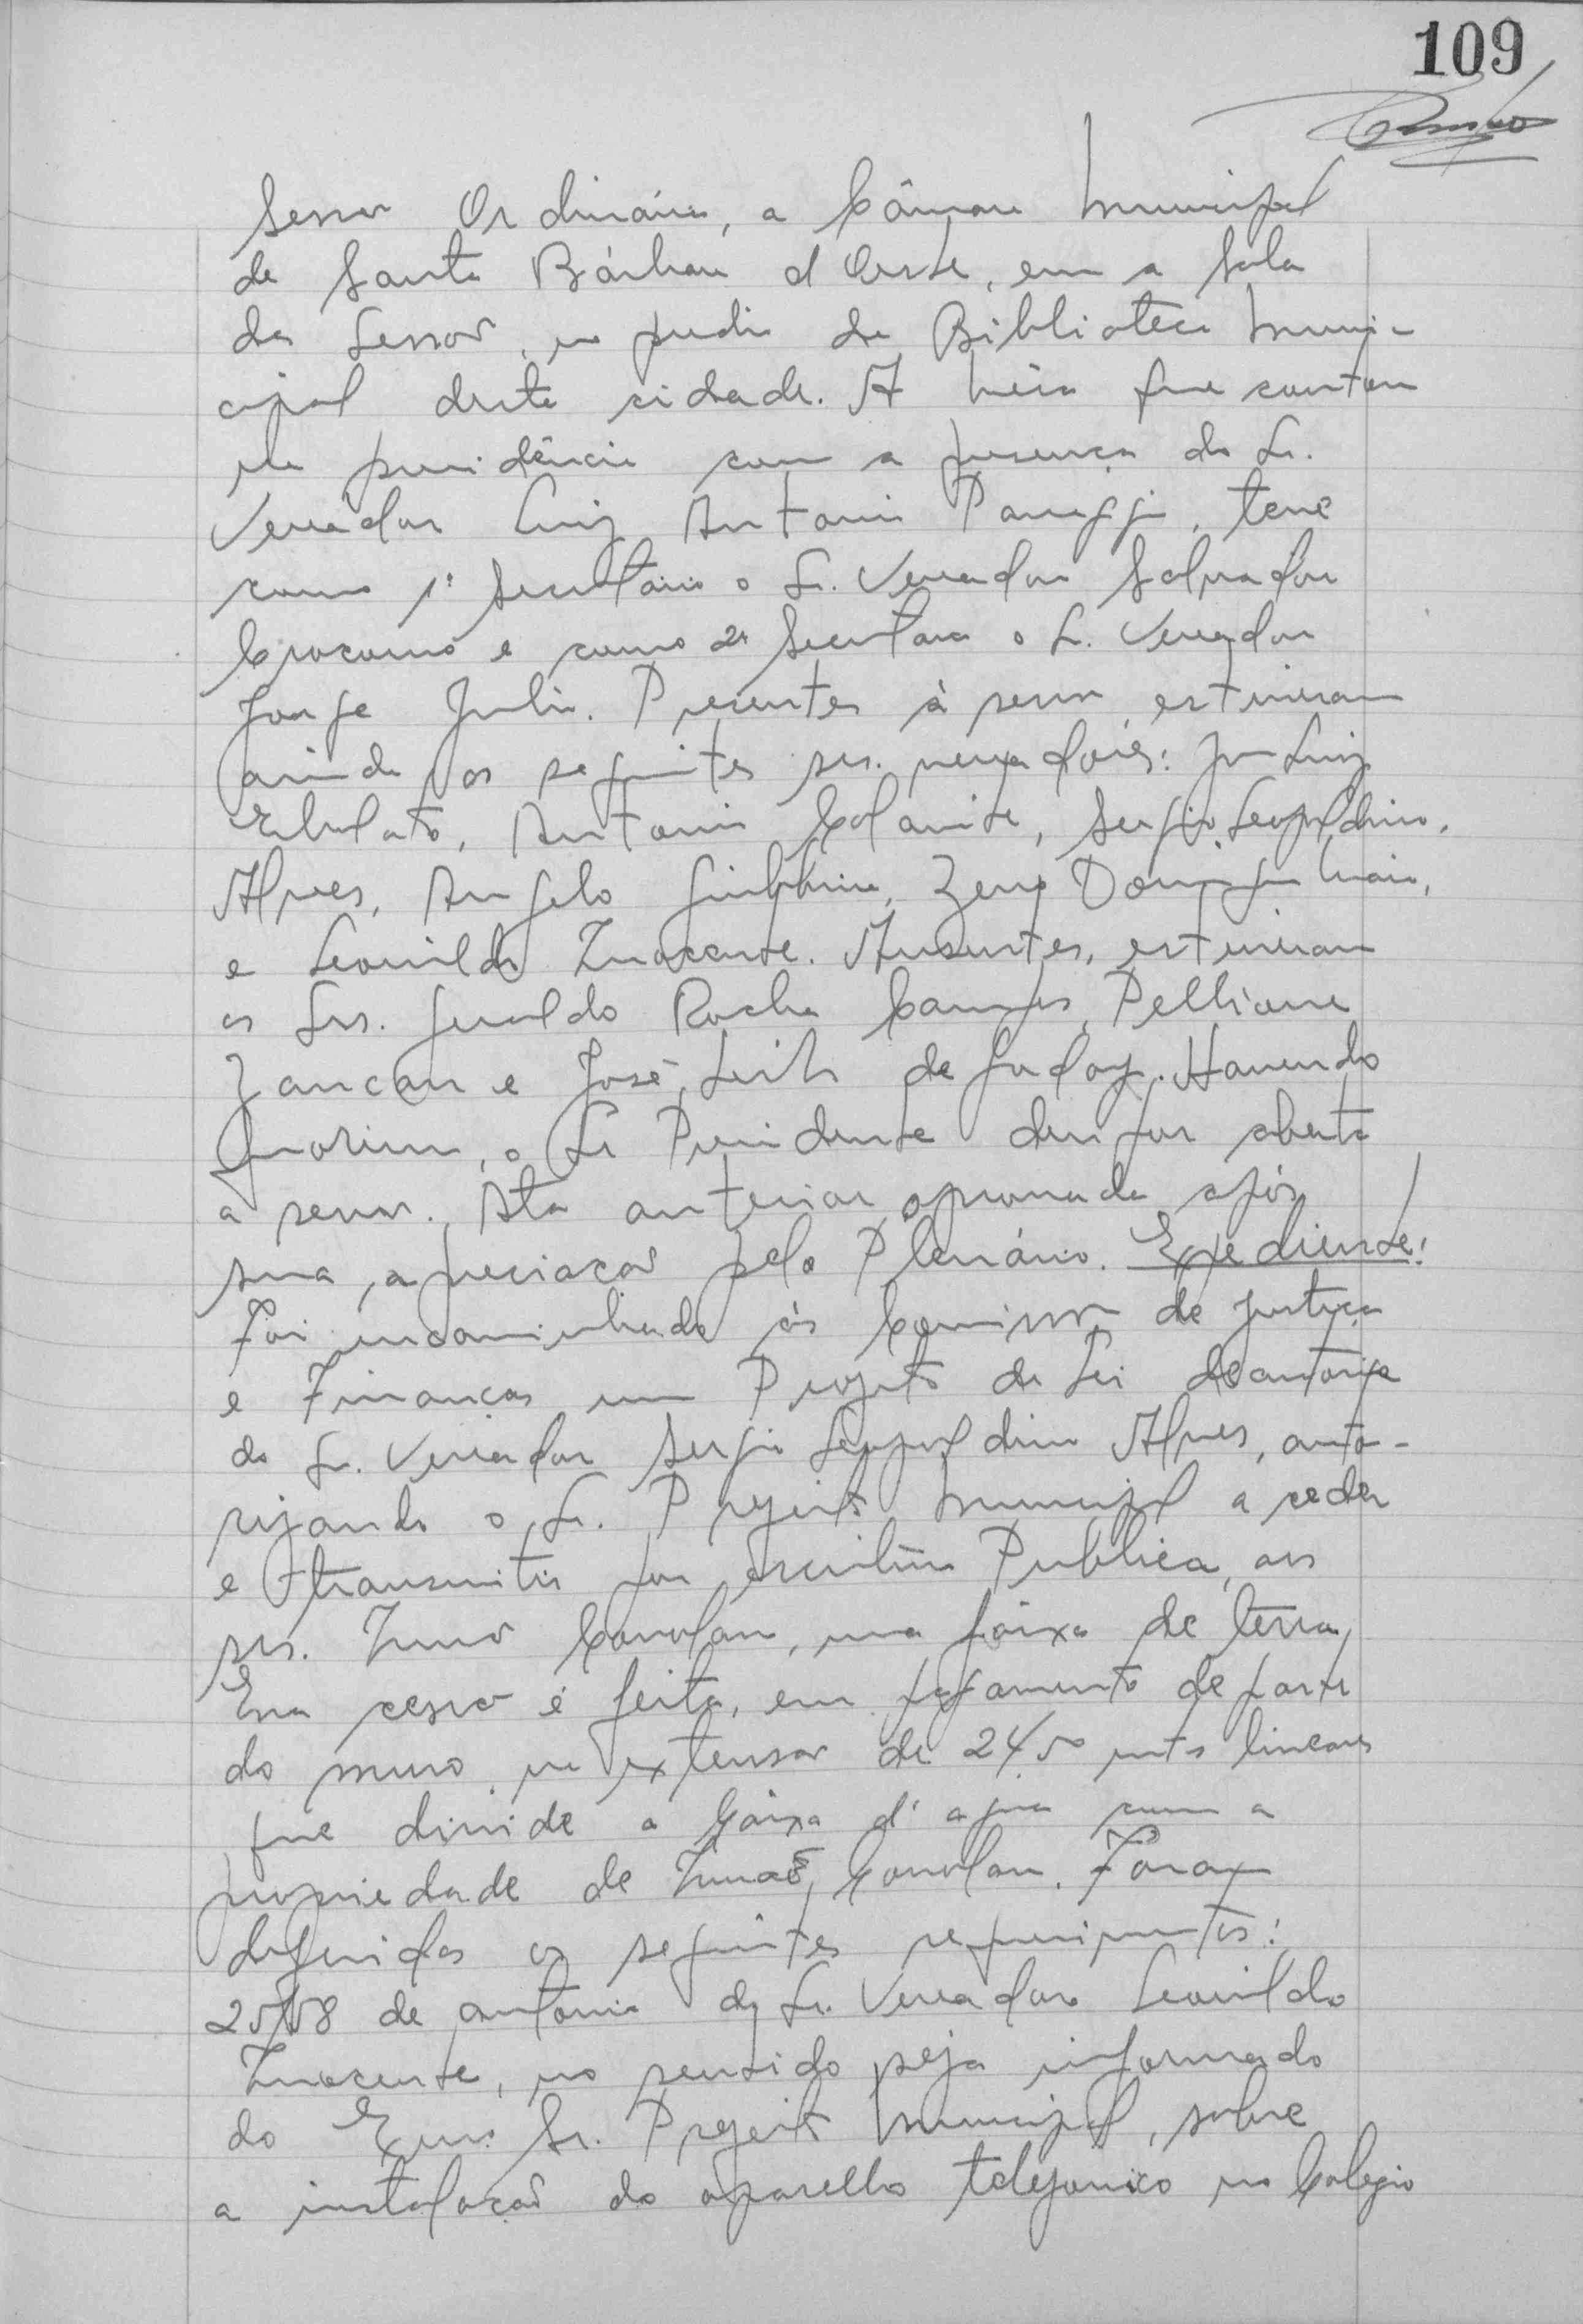 109
Sessão Ordinária, a Câmara Municipal
de Santa Bárbara d'Oeste, em a Sala
das Sessões, no predio da Biblioteca Muni-
cipal desta cidade. A Mesa que contou
na presidência com a presença do Sr.
Vereador Luiz Antonio Panaggio, teve
como 1º Secretário o Sr. Vereador Salvador
Crocomo e como 2º Secretario o Sr. Vereador
Jorge Julio. Presentes à sessão, estiveram
ainda os seguintes srs. vereadores: Luiz
Antonio Colamite, Sergio Leopoldino,
Alves, Angelo Giubbina, Zeno Domingos Maia,
e Leonildo Inocente. Ausentes, estiveram
os Srs. Geraldo Rocha Campos, Pelliane
Zancan e José Leite de Godoy. Havendo
quorum, o Sr Presidente deu por aberta
a sessão. Ata anterior aprovada após
sua apreciação pelo Plenário. Expediente:
Foi encaminhado às Comissão de Justiça
e Finanças um Projeto de Lei de autoria
do Sr. Vereador Sergio Leopoldino Alves, auto-
rizando o Sr. Prefeito Municipal a ceder
e transmitir por escritura Publica, aos
srs. Irmãos Covolan, uma faixa de terra,
Essa cessão é feita, em pagamento de parte
do muro na extensão de 24,50 mts lineares
que divide a Caixa d'agua com a
propriedade de Irmãos Covolan. Foram
deferidos os seguintes requerimentos:
25/58 de autoria do Sr. Vereador Leonildo
Inocente, no sentido seja informado
do Exmo. Sr. Prefeito Municipal, sobre
a instalação do aparelho telefonico no Colegio